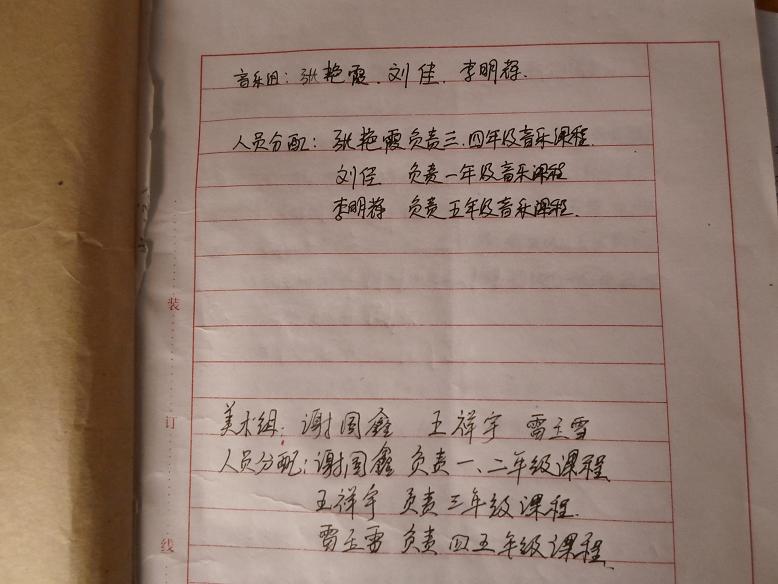 音乐组：张艳霞、刘佳、李明辉.
人员分配：张艳霞负责三、四年级音乐课程.
刘佳 负责一年级音乐课程
李明辉 负责五年级音乐课程.
美术组：谢国鑫 王祥宇 雷玉雪
人员分配：谢国鑫 负责一、二年级课程
王祥宇 负责三年级课程.
雷玉雪 负责四五年级课程
装
订
线